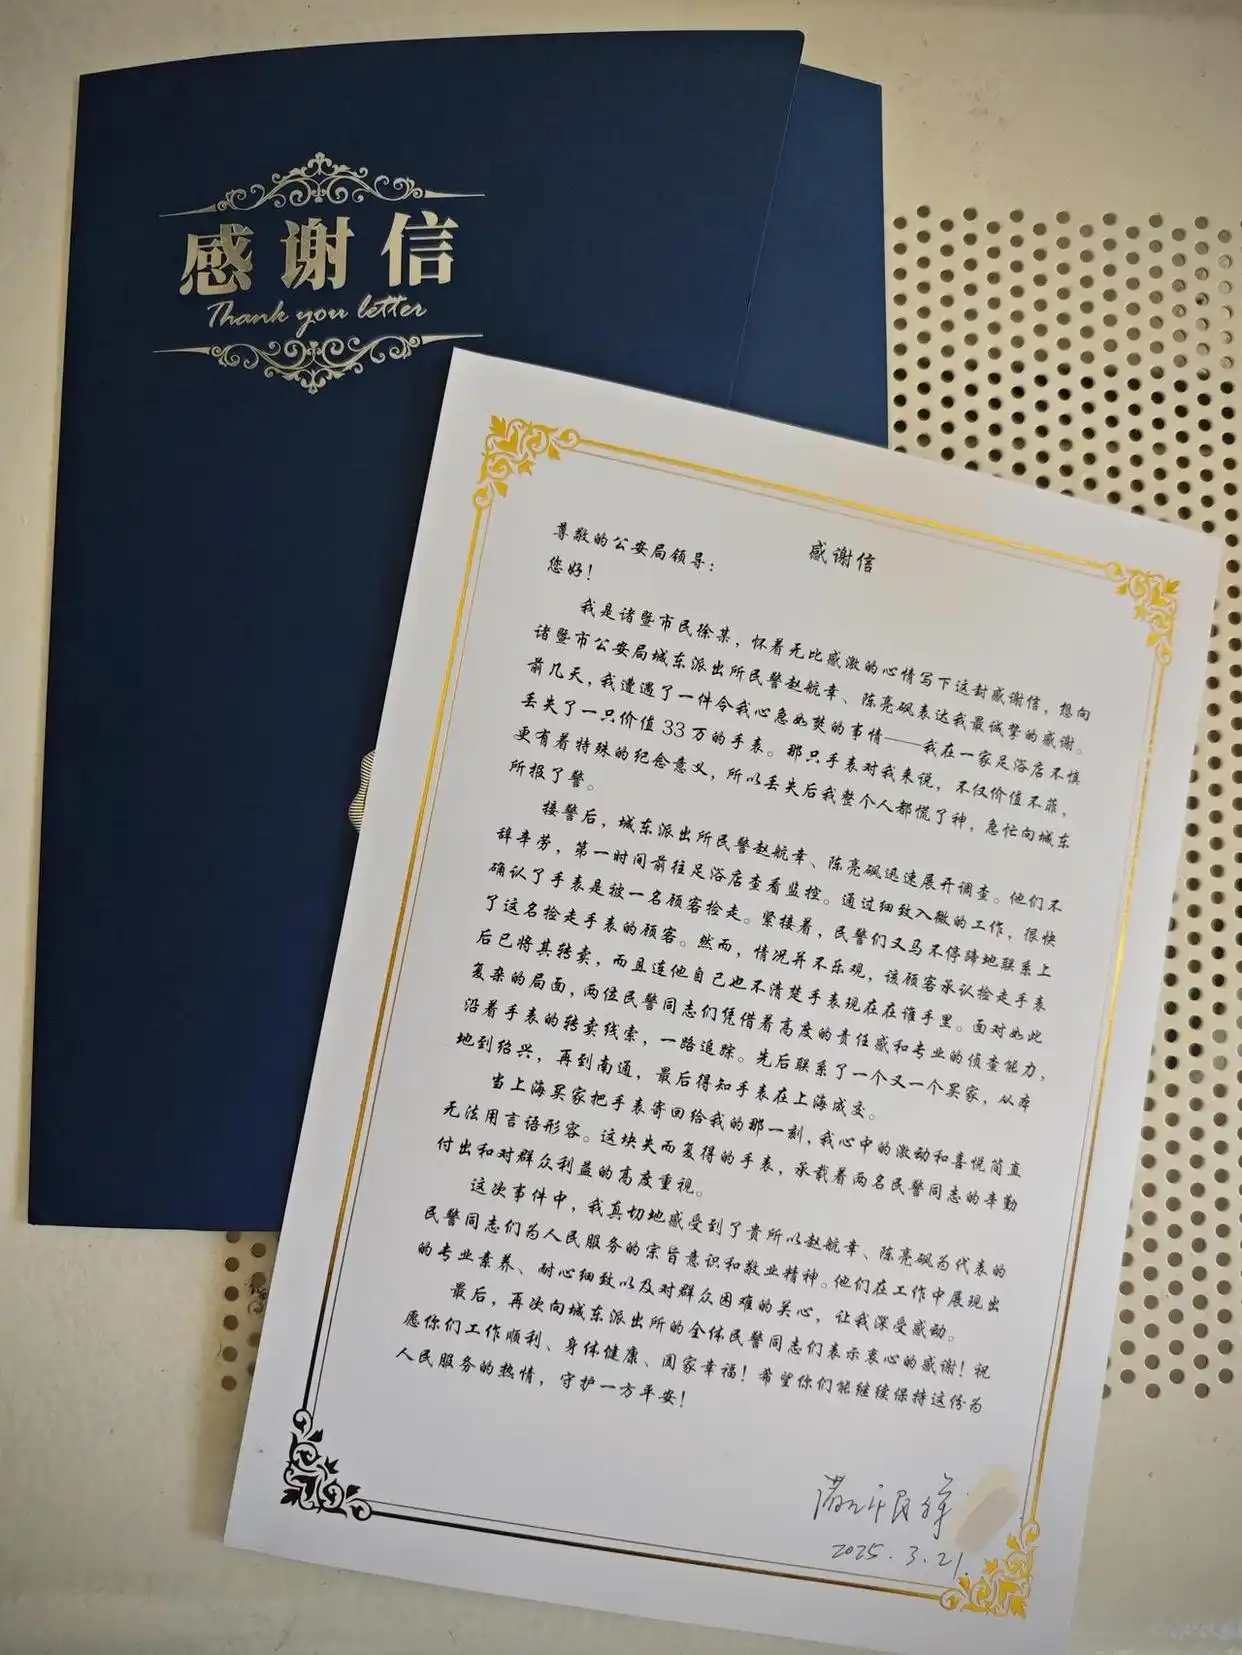 感谢信
Thank you letter
感谢信
尊敬的公安局领导：
您好！
我是诸暨市民徐某，怀着无比感激的心情写下这封感谢信，想向
诸暨市公安局城东派出所民警赵航幸、陈亮飒表达我最诚挚的感谢。
前几天，我遭遇了一件令我心急如焚的事情——我在一家足浴店不慎
丢失了一只价值33万的手表。那只手表对我来说，不仅价值不菲，
更有着特殊的纪念意义，所以丢失后我整个人都慌了神，急忙向城东
所报了警。
接警后，城东派出所民警赵航幸、陈亮飒迅速展开调查。他们不
辞辛劳，第一时间前往足浴店查看监控。通过细致入微的工作，很快
确认了手表是被一名顾客捡走。紧接着，民警们又马不停蹄地联系上
了这名捡走手表的顾客。然而，情况并不乐观，该顾客承认捡走手表
后已将其转卖，而且连他自己也不清楚手表现在在谁手里。面对如此
复杂的局面，两位民警同志们凭借着高度的责任感和专业的侦查能力，
沿着手表的转卖线索，一路追踪。先后联系了一个又一个买家，从本
地到绍兴，再到南通，最后得知手表在上海成交。
当上海买家把手表寄回给我的那一刻，我心中的激动和喜悦简直
无法用言语形容。这块失而复得的手表，承载着两名民警同志的辛勤
付出和对群众利益的高度重视。
这次事件中，我真切地感受到了贵所以赵航幸、陈亮飒为代表的
民警同志们为人民服务的宗旨意识和敬业精神。他们在工作中展现出
的专业素养、耐心细致以及对群众困难的关心，让我深受感动。
最后，再次向城东派出所的全体民警同志们表示衷心的感谢！祝
愿你们工作顺利、身体健康、阖家幸福！希望你们能继续保持这份为
人民服务的热情，守护一方平安！
2025.3.21.